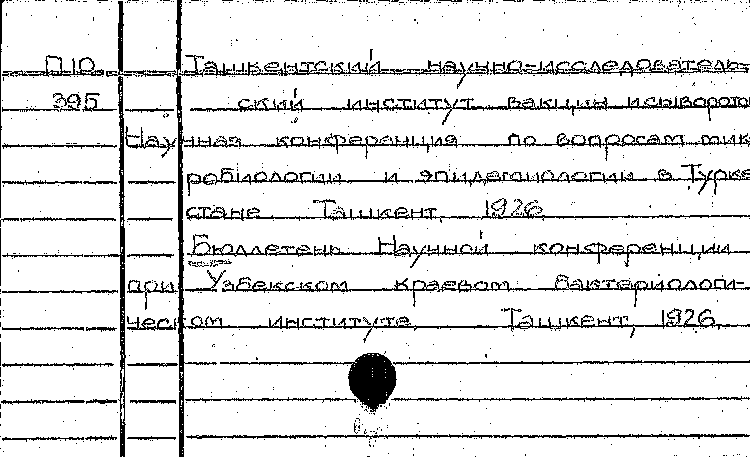 П.10. Ташкентский научно-исследователь-
395 ский институт вакцин и сыворото
Научная конференция по вопросам мик
робиологии и эпидемиологии в Турке
стане Ташкент, 1926.
Бюллетень Научной конференции
при Узбекском краевом бактериологи-
ческом институте. Ташкент, 1926.